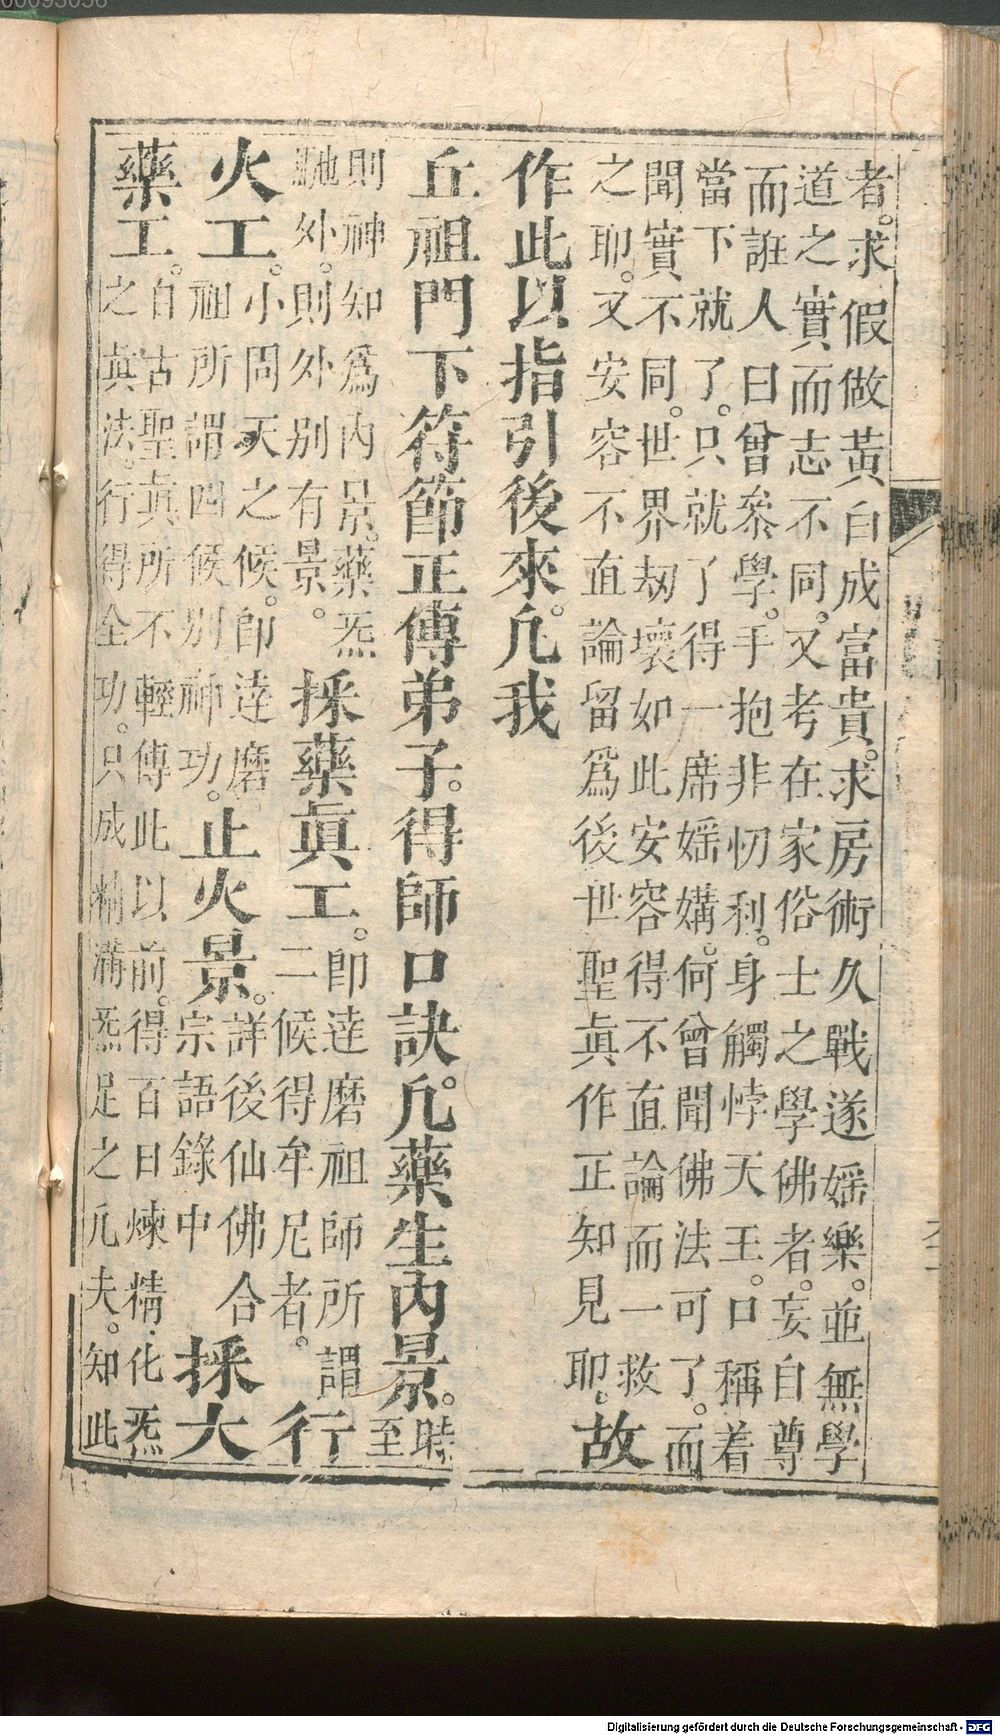 者。求假做黃白成富貴。求房術久戰遂婬樂。並無學
道之實而志不同。又考在家俗士之學佛者。妄自尊
而誑人曰曾叅學。手抱非忉利。身觸悖天王。口稱着
當下就了。只就了得一席婬媾。何曾聞佛法可了。而
聞實不同。世界刼壞如此安容得不直論而一救
之耶。又安容不直論留爲後世聖眞作正知見耶。故
作此以指引後來。凢我
丘祖門下符節正傳弟子。得師口訣。凢藥生內景。時至
則神知爲內景。藥炁馳外。則外別有景。採藥眞工。即逹磨祖師所謂二候得牟尼者。行
火工。小周天之候。即逹磨祖所謂四候別神功。止火景。詳後仙佛合宗語錄中採大
藥工。自古聖眞所不輕傳此以前。得百日煉精化炁之眞法。行得全功。只成精滿炁足之凢夫。知此
Digitalisierung gefördert durch die Deutsche Forschungsgemeinschaft - DFG